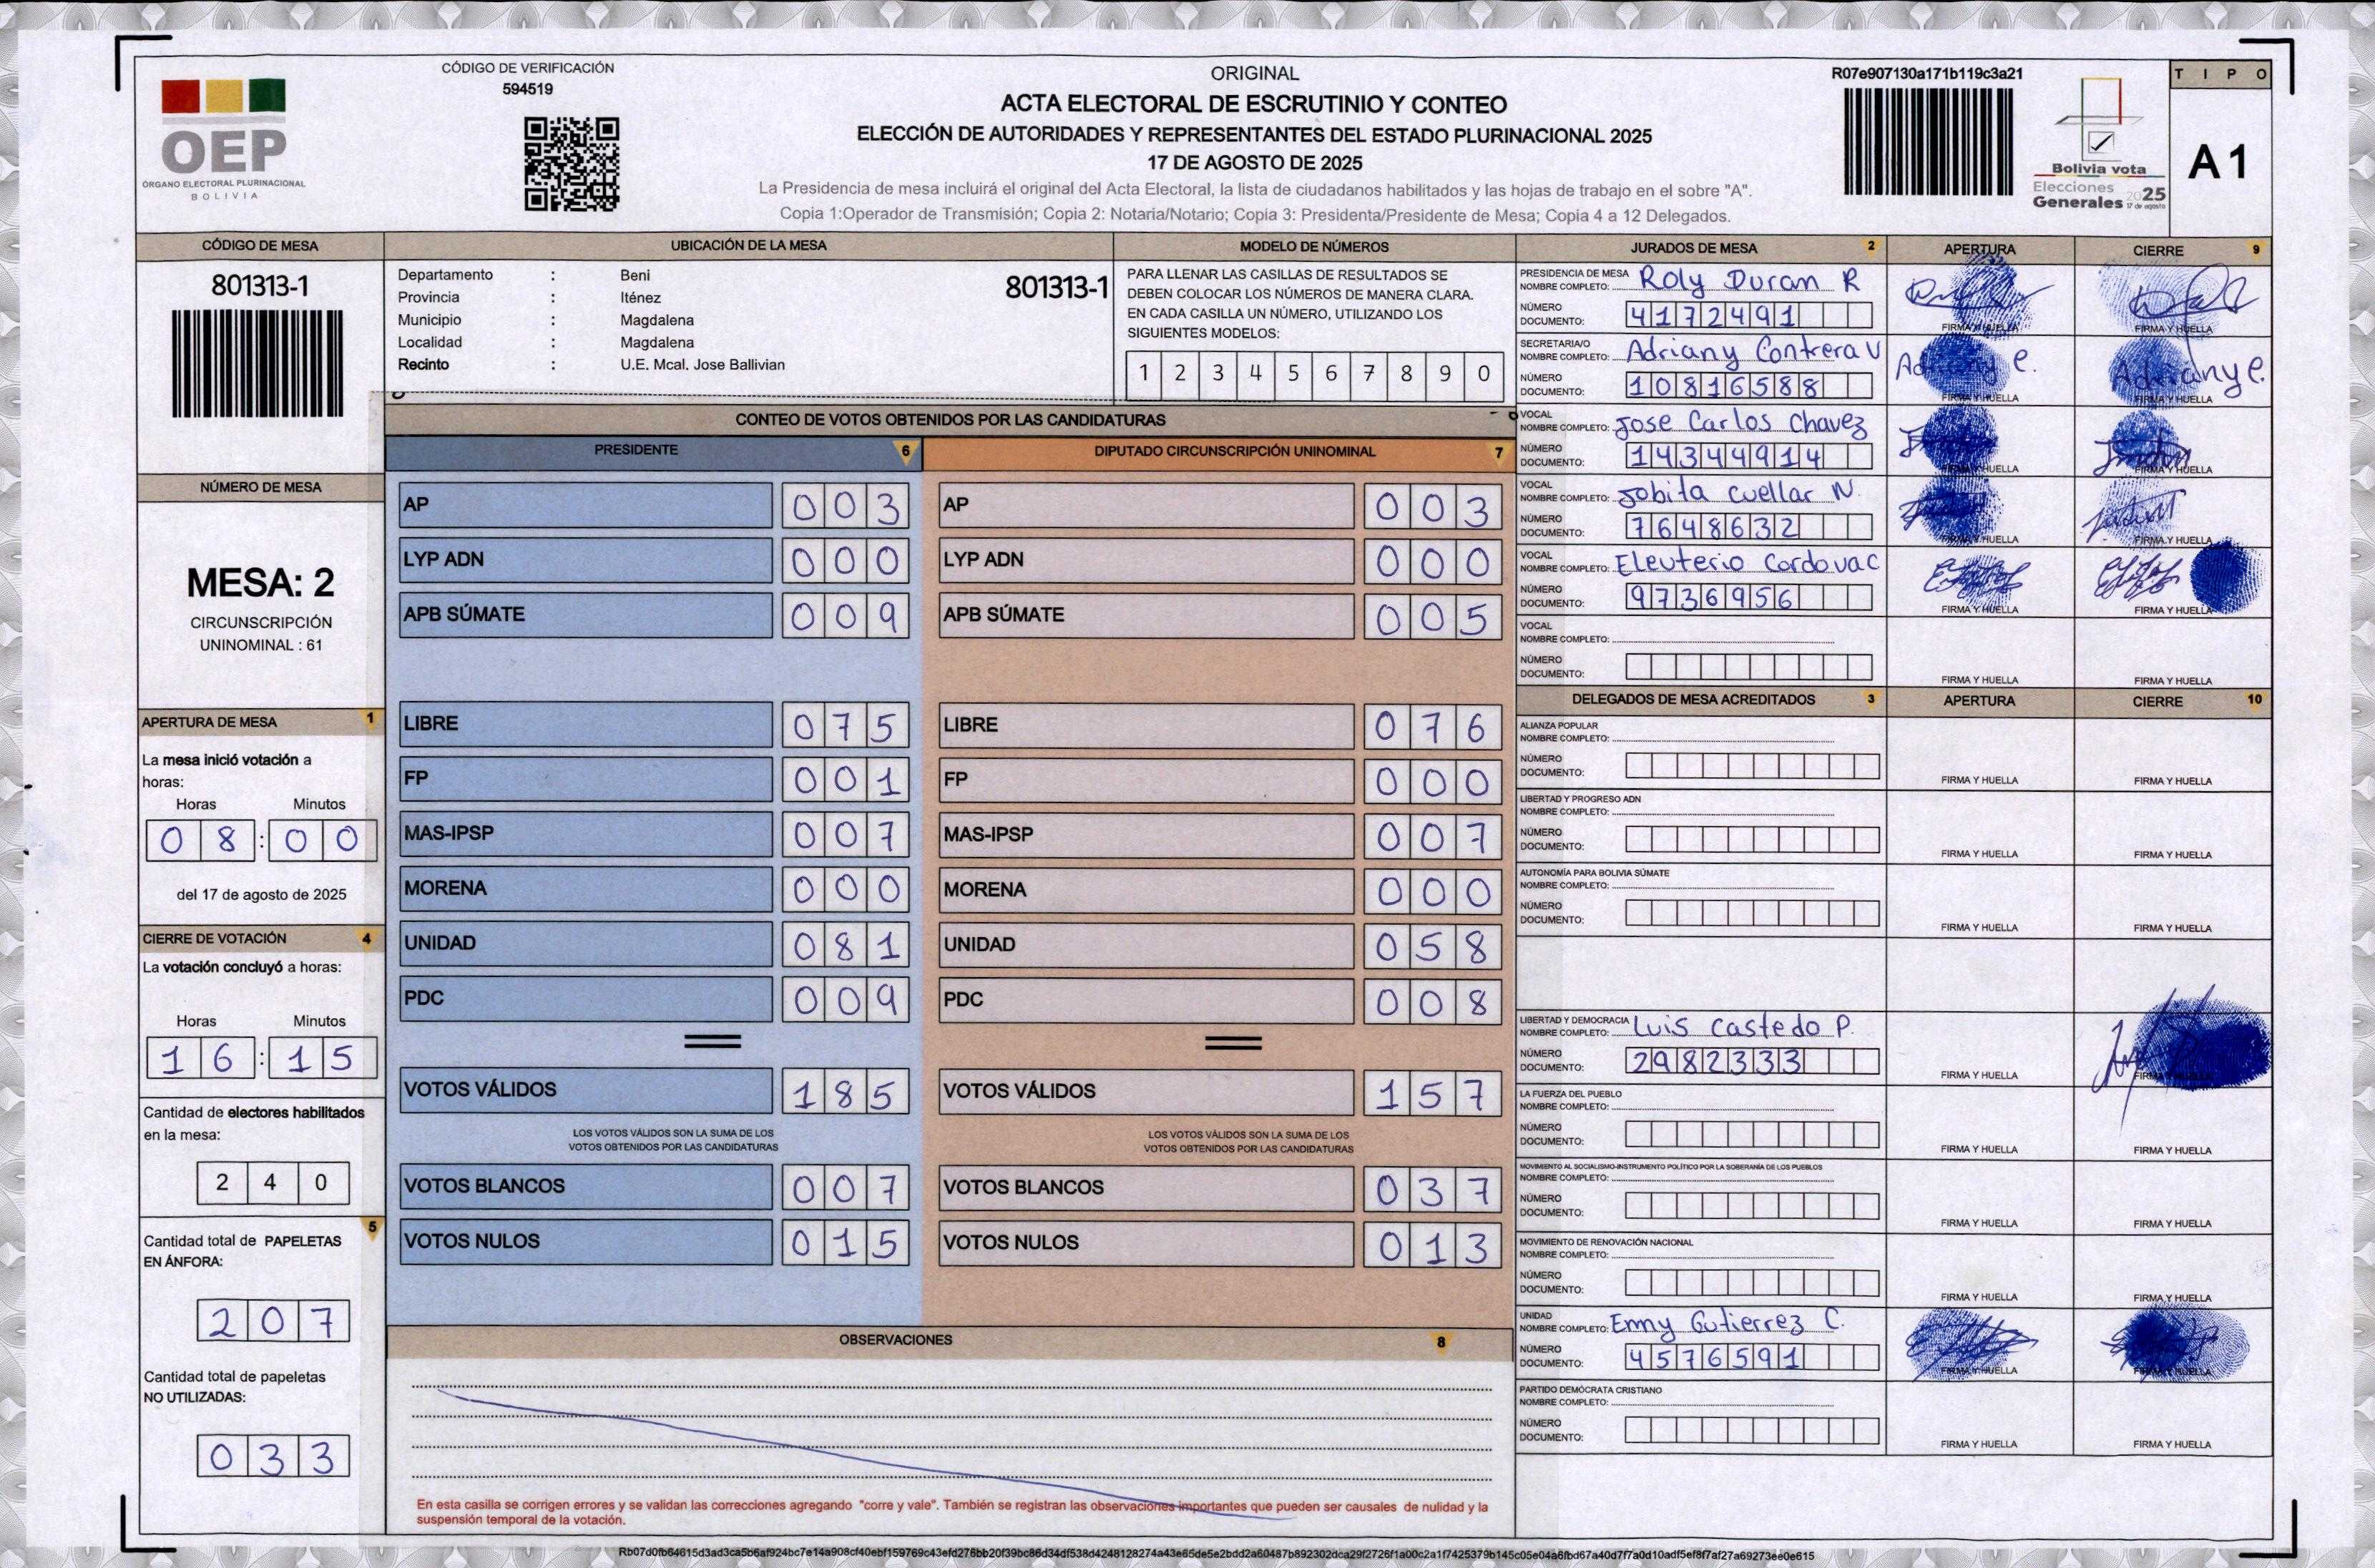 CÓDIGO DE VERIFICACIÓN
594519
OEP
ÓRGANO ELECTORAL PLURINACIONAL
BOLIVIA
ORIGINAL
ACTA ELECTORAL DE ESCRUTINIO Y CONTEO
ELECCIÓN DE AUTORIDADES Y REPRESENTANTES DEL ESTADO PLURINACIONAL 2025
17 DE AGOSTO DE 2025
La Presidencia de mesa incluirá el original del Acta Electoral, la lista de ciudadanos habilitados y las hojas de trabajo en el sobre "A".
Copia 1:Operador de Transmisión; Copia 2: Notaria/Notario; Copia 3: Presidenta/Presidente de Mesa; Copia 4 a 12 Delegados.
R07e907130a171b119c3a21
Bolivia vota
Elecciones
Generales 2025
17 de agosto
TIPO
A1
CÓDIGO DE MESA
801313-1
UBICACIÓN DE LA MESA
Departamento : Beni
Provincia : Iténez
Municipio : Magdalena
Localidad : Magdalena
Recinto : U.E. Mcal. Jose Ballivian
801313-1
MODELO DE NÚMEROS
PARA LLENAR LAS CASILLAS DE RESULTADOS SE
DEBEN COLOCAR LOS NÚMEROS DE MANERA CLARA.
EN CADA CASILLA UN NÚMERO, UTILIZANDO LOS
SIGUIENTES MODELOS:
1 2 3 4 5 6 7 8 9 0
NÚMERO DE MESA
MESA: 2
CIRCUNSCRIPCIÓN
UNINOMINAL : 61
APERTURA DE MESA 1
La mesa inició votación a
horas:
Horas Minutos
08:00
del 17 de agosto de 2025
CIERRE DE VOTACIÓN 4
La votación concluyó a horas:
Horas Minutos
16:15
Cantidad de electores habilitados
en la mesa:
240
5
Cantidad total de PAPELETAS
EN ÁNFORA:
207
Cantidad total de papeletas
NO UTILIZADAS:
033
CONTEO DE VOTOS OBTENIDOS POR LAS CANDIDATURAS
PRESIDENTE 6
AP 003
LYP ADN 000
APB SÚMATE 009
LIBRE 075
FP 001
MAS-IPSP 007
MORENA 000
UNIDAD 081
PDC 009
VOTOS VÁLIDOS 185
LOS VOTOS VÁLIDOS SON LA SUMA DE LOS
VOTOS OBTENIDOS POR LAS CANDIDATURAS
VOTOS BLANCOS 007
VOTOS NULOS 015
DIPUTADO CIRCUNSCRIPCIÓN UNINOMINAL 7
AP 003
LYP ADN 000
APB SÚMATE 005
LIBRE 076
FP 000
MAS-IPSP 007
MORENA 000
UNIDAD 058
PDC 008
VOTOS VÁLIDOS 157
LOS VOTOS VÁLIDOS SON LA SUMA DE LOS
VOTOS OBTENIDOS POR LAS CANDIDATURAS
VOTOS BLANCOS 037
VOTOS NULOS 013
OBSERVACIONES 8
En esta casilla se corrigen errores y se validan las correcciones agregando "corre y vale". También se registran las observaciones importantes que pueden ser causales de nulidad y la
suspensión temporal de la votación.
JURADOS DE MESA 2 APERTURA CIERRE 9
PRESIDENCIA DE MESA
NOMBRE COMPLETO: Roly Duran R
NÚMERO
DOCUMENTO: 4172491
FIRMA Y HUELLA FIRMA Y HUELLA
SECRETARIA/O
NOMBRE COMPLETO: Adriany Contrera V
NÚMERO
DOCUMENTO: 10816588
Adriany C. Adriany C.
FIRMA Y HUELLA FIRMA Y HUELLA
VOCAL
NOMBRE COMPLETO: Jose Carlos Chavez
NÚMERO
DOCUMENTO: 14344914
FIRMA Y HUELLA FIRMA Y HUELLA
VOCAL
NOMBRE COMPLETO: Jobita Cuellar N.
NÚMERO
DOCUMENTO: 7648632
FIRMA Y HUELLA FIRMA Y HUELLA
VOCAL
NOMBRE COMPLETO: Eleuterio Cordova C
NÚMERO
DOCUMENTO: 9736956
FIRMA Y HUELLA FIRMA Y HUELLA
VOCAL
NOMBRE COMPLETO:
NÚMERO
DOCUMENTO:
FIRMA Y HUELLA FIRMA Y HUELLA
DELEGADOS DE MESA ACREDITADOS 3 APERTURA CIERRE 10
ALIANZA POPULAR
NOMBRE COMPLETO:
NÚMERO
DOCUMENTO:
FIRMA Y HUELLA FIRMA Y HUELLA
LIBERTAD Y PROGRESO ADN
NOMBRE COMPLETO:
NÚMERO
DOCUMENTO:
FIRMA Y HUELLA FIRMA Y HUELLA
AUTONOMÍA PARA BOLIVIA SÚMATE
NOMBRE COMPLETO:
NÚMERO
DOCUMENTO:
FIRMA Y HUELLA FIRMA Y HUELLA
LIBERTAD Y DEMOCRACIA
NOMBRE COMPLETO: Luis Castedo P.
NÚMERO
DOCUMENTO: 2982333
FIRMA Y HUELLA FIRMA Y HUELLA
LA FUERZA DEL PUEBLO
NOMBRE COMPLETO:
NÚMERO
DOCUMENTO:
FIRMA Y HUELLA FIRMA Y HUELLA
MOVIMIENTO AL SOCIALISMO-INSTRUMENTO POLÍTICO POR LA SOBERANÍA DE LOS PUEBLOS
NOMBRE COMPLETO:
NÚMERO
DOCUMENTO:
FIRMA Y HUELLA FIRMA Y HUELLA
MOVIMIENTO DE RENOVACIÓN NACIONAL
NOMBRE COMPLETO:
NÚMERO
DOCUMENTO:
FIRMA Y HUELLA FIRMA Y HUELLA
UNIDAD
NOMBRE COMPLETO: Enny Gutierrez C.
NÚMERO
DOCUMENTO: 4576591
FIRMA Y HUELLA FIRMA Y HUELLA
PARTIDO DEMÓCRATA CRISTIANO
NOMBRE COMPLETO:
NÚMERO
DOCUMENTO:
FIRMA Y HUELLA FIRMA Y HUELLA